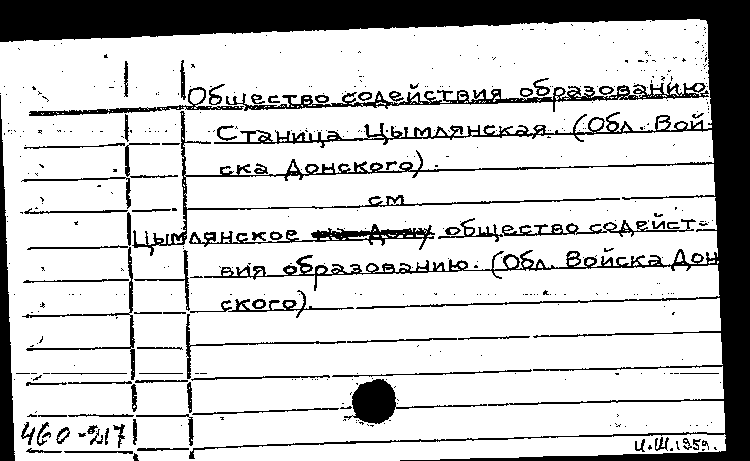 Общество содействия образованию
Станица Цымлянская. (Обл. Вой-
ска Донского).
см
Цымлянское общество содейст-
вия образованию. (Обл. Войска Дон
ского).
460-217
И.Ш.1959.